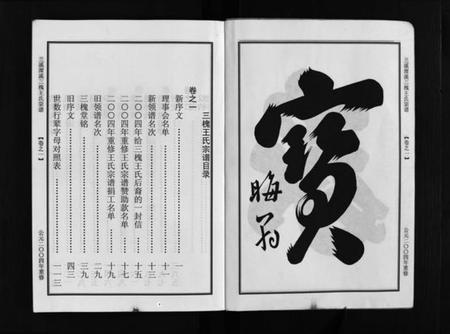 寶
晦翁
公元二〇〇四年重修
三槐王氏宗谱目录
卷之一
新序文………一
理事会名单………十一
新领谱名次………十三
二〇〇四年给三槐王氏后裔的一封信………十五
二〇〇四年重修王氏宗谱赞助款名单………十七
二〇〇四年重修王氏宗谱捐工名单………十九
旧领谱名次………二九
三槐堂铭………三九
旧序文………四三
世数行辈字母对照表………一一三
三槐王氏宗谱
【卷之一】
公元二〇〇四年重修